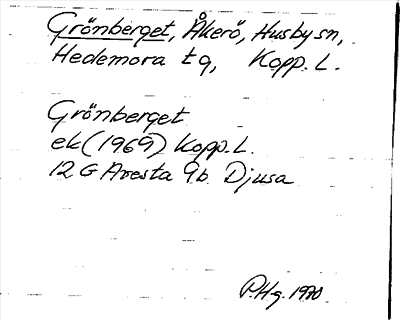 Grönberget, Åkerö, Husby sn,
Hedemora tg, Kopp. L.
Grönberget
ek (1969) Kopp. L.
12 G Avesta 9b Djusa
P.Hg. 1970